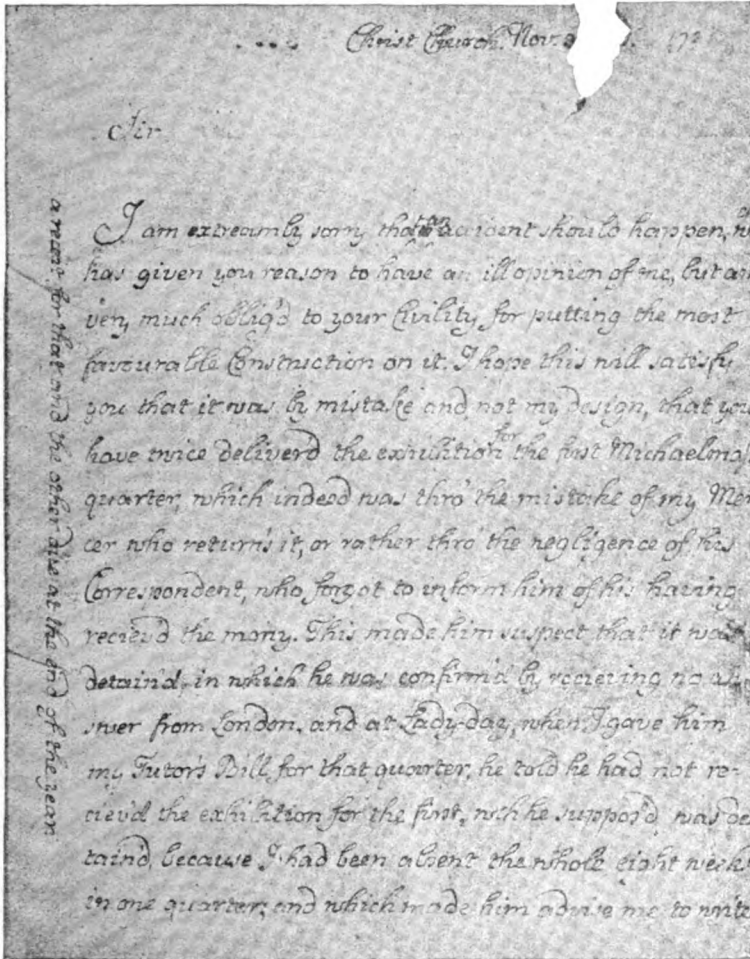 Christ Church. Nov.
Sir
I am extreamly sorry that an accident should happen,
has given you reason to have an ill opinion of me, but am
very much oblig'd to your Civility for putting the most
favourable Construction on it. I hope this will satisfy
you that it was by mistake and not my design, that you
have twice deliverd the exhibition for the first Michaelmas
quarter, which indeed was thro' the mistake of my Mer
cer who returns it, or rather thro' the negligence of his
Correspondent, who forgot to inform him of his having
reciev'd the mony. This made him suspect that it was
detain'd, in which he was confirm'd by recieving no an
swer from London, and at Lady-day, when I gave him
my Tutor's Bill for that quarter, he told he had not re-
ciev'd the exhibition for the first, wch he suppos'd was de
taind, because I had been absent the whole eight weeks
in one quarter; and which made him advise me to write
a receit for that and the other due at the end of the year